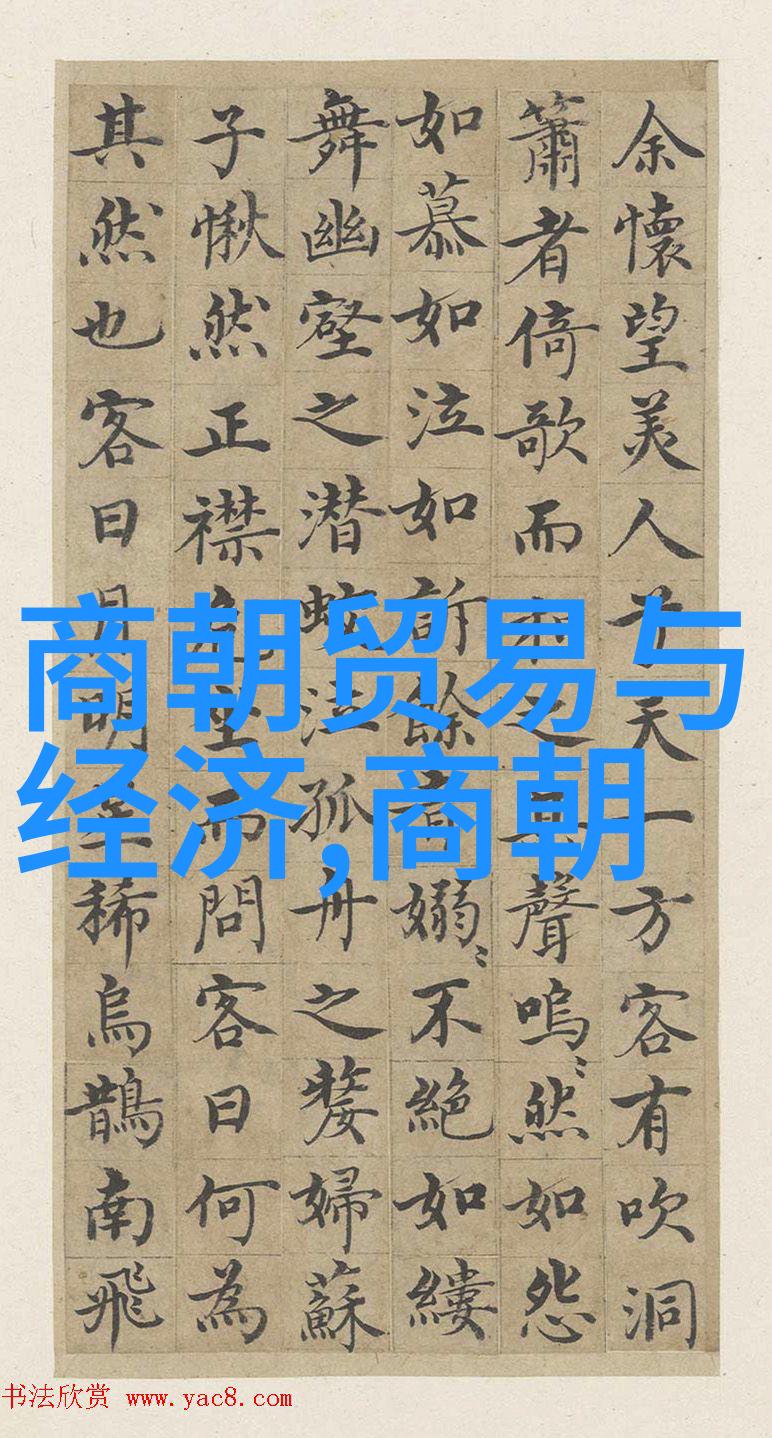 余懷望美人兮天一方客有吹洞
簫者倚歌而和之其聲嗚〻然如怨
如慕如泣如訴餘音嫋〻不絕如縷
舞幽壑之潜蛟泣孤舟之嫠婦蘇
子愀然正襟危坐而問客曰何為
其然也客曰月明星稀烏鵲南飛
商朝贸易与
经济,商朝
书法欣赏 www.yac8.com